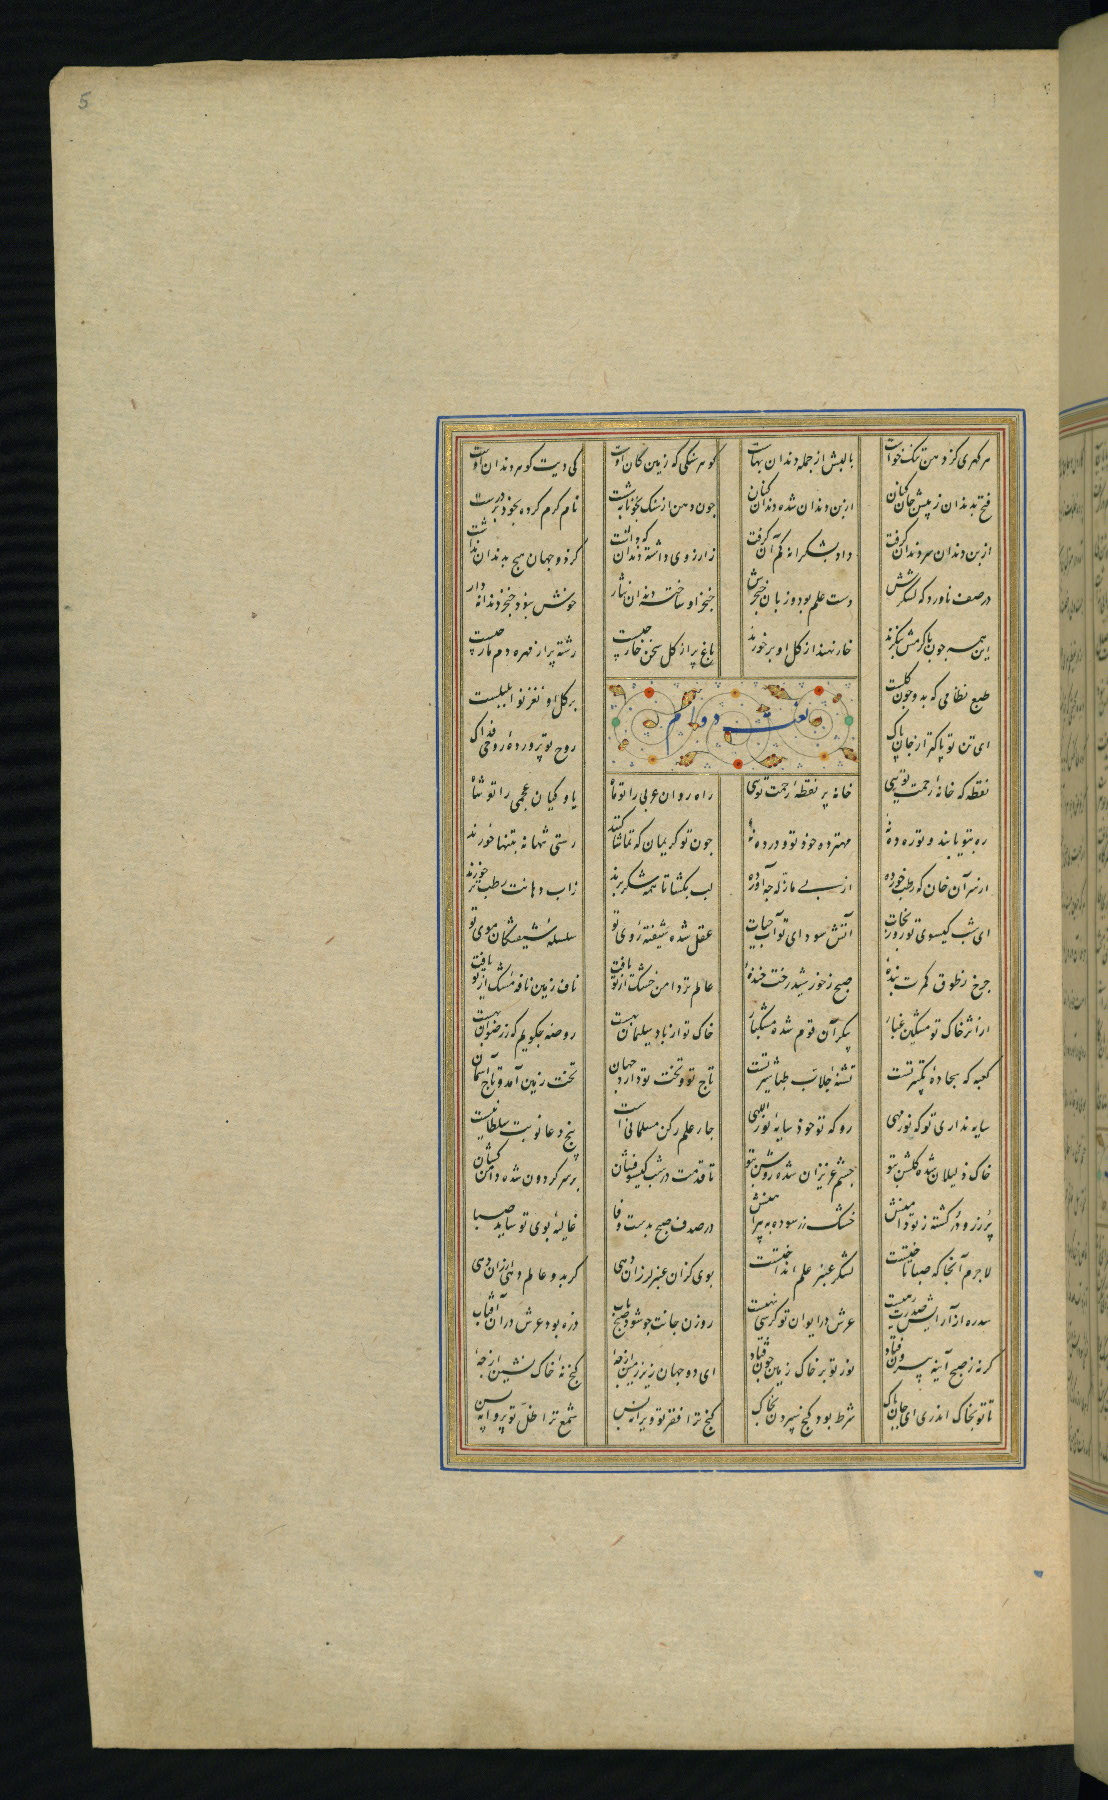 5
هر گهری کز دهن سنگ خواست بالبش از جمله دندان بهاست گوهر سنگی که زمین کان اوست کی دیت گوهر دندان اوست
فتح بدندان ز پیش جان کنان از بن دندان شده دندان کنان چون دهن از سنگ بخونابه شست نام کرم کرده بخود بر درست
از بن دندان سر دندان گرفت داد بشکرانه کم آن گرفت زارزوی داشته دندان که داشت کز دو جهان هیچ بدندان نداشت
در صف ناورد که لشکرش دست علم بود و زبان خنجرش خنجر او ساخته دندان نثار خوش نبود خنجر دندانه دار
این همه چون تا کرمش بنگرند خار نهند از گل او بر خورند باغ پر از گل سخن خار چیست رشته پر از مهره دم مار چیست
طبع نظامی که بدو چون گلست بر گل او نغز نوا بلبلست
نعت دوم
ای تن تو پاکتر از جان پاک روح تو پرورده روحی فداک
نقطه که خانه رحمت تویی خانه بر نقطه زحمت تویی راه روان عربی را تو ماه یاوگیان عجمی را تو شاه
ره بتو یابند و تو ره ده نه مهتر ده خود تو و در ده نه چون تو کریمان که تماشا کنند رستی تنها نه بتنها خورند
از سر آن خوان که رطب خورده از پی ما زله چه آورده لب بگشا تا همه شکر برند زاب دهانت رطب تر خورند
ای شب گیسوی تو روز نجات آتش سودای تو آب حیات عقل شده شیفته روی تو سلسله شیفتگان موی تو
چرخ ز طوق کمرت بنده صبح ز خورشید رخت خنده عالم تردامن خشک از تو یافت ناف زمین نافه مشک از تو یافت
از اثر خاک تو مشکین غبار پیکر آن قوم شده مشکبار خاک تو از باد سلیمان بهست روضه چگویم که ز رضوان بهست
کعبه که سجاده تکبیر تست تشنه جلاب تباشیر تست تاج تو و تخت تو دارد جهان تخت زمین آمد و تاج آسمان
سایه نداری تو که نور مهی رو که تو خود سایه نور اللهی چار علم رکن مسلمانی است پنج دعا نوبت سلطانیست
خاک ذلیلان شده گلشن بتو چشم عزیزان شده روشن بتو تا قدمت در شب گیسو فشان بر سر گردون شده دامن کشان
پر زر و در گشته ز تو دامنش خشتک زر سوده به پیراهنش در صدف صبح بدست وفا غالیه بوی تو ساید صبا
لاجرم آنجا که صبا تاختست لشکر عنبر علم انداختست بوی کزان عنبر لرزان دهی گر بدو عالم دهی ارزان دهی
سدره ز آرایش صدرت رهیست عرش در ایوان تو کرسی نهیست روزن جانت چو شود صبح تاب ذره بود عرش در آن آفتاب
گرنه ز صبح آینه بیرون فتاد نور تو بر خاک زمین چون فتاد ای دو جهان زیر زمین از چه گنج نه خاک نشین از چه
تا تو بخاک اندری ای جان پاک شرط بود گنج سپردن بخاک گنج ترا فقر تو ویرانه بس شمع ترا ظل تو پروانه بس